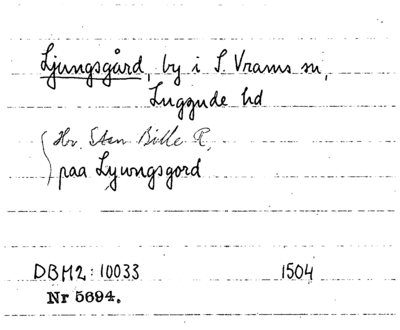 Ljungsgård, by i S. Vrams sn,
Luggude hd
Hr. Sten Bille R,
paa Lywngsgord
DBM2: 10033 1504
Nr 5694.